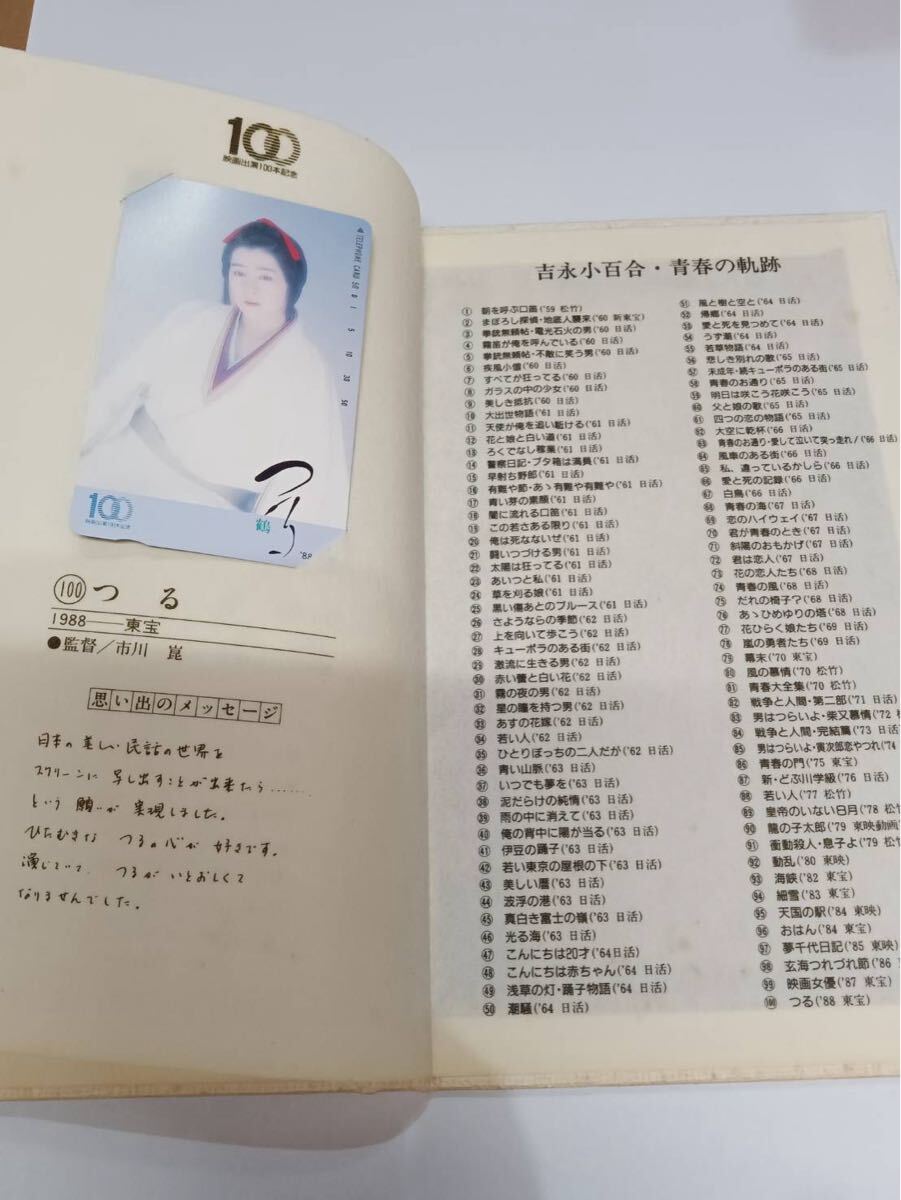 100
映画出演100本記念
◀TELEPHONE CARD 50 0 1 5 10 30 50
つる
100
映画出演100本記念
鶴
'88
(100)つる
1988——東宝
●監督/市川 崑
思い出のメッセージ
日本の美しい民話の世界を
スクリーンに写し出すことが出来たら……
という願いが実現しました。
ひたむきな つるの心が好きです。
演じていて、つるがいとおしくて
なりませんでした。
吉永小百合・青春の軌跡
① 朝を呼ぶ口笛('59 松竹)
② まぼろし探偵・地底人襲来('60 新東宝)
③ 拳銃無頼帖・電光石火の男('60 日活)
④ 霧笛が俺を呼んでいる('60 日活)
⑤ 拳銃無頼帖・不敵に笑う男('60 日活)
⑥ 疾風小僧('60 日活)
⑦ すべてが狂ってる('60 日活)
⑧ ガラスの中の少女('60 日活)
⑨ 美しき抵抗('60 日活)
⑩ 大出世物語('61 日活)
⑪ 天使が俺を追い駈ける('61 日活)
⑫ 花と娘と白い道('61 日活)
⑬ ろくでなし稼業('61 日活)
⑭ 警察日記・ブタ箱は満員('61 日活)
⑮ 早射ち野郎('61 日活)
⑯ 有難や節・あゝ有難や有難や('61 日活)
⑰ 青い芽の素顔('61 日活)
⑱ 闇に流れる口笛('61 日活)
⑲ この若さある限り('61 日活)
⑳ 俺は死なないぜ('61 日活)
㉑ 闘いつづける男('61 日活)
㉒ 太陽は狂ってる('61 日活)
㉓ あいつと私('61 日活)
㉔ 草を刈る娘('61 日活)
㉕ 黒い傷あとのブルース('61 日活)
㉖ さようならの季節('62 日活)
㉗ 上を向いて歩こう('62 日活)
㉘ キューポラのある街('62 日活)
㉙ 激流に生きる男('62 日活)
㉚ 赤い蕾と白い花('62 日活)
㉛ 霧の夜の男('62 日活)
㉜ 星の瞳を持つ男('62 日活)
㉝ あすの花嫁('62 日活)
㉞ 若い人('62 日活)
㉟ ひとりぼっちの二人だが('62 日活)
㊱ 青い山脈('63 日活)
㊲ いつでも夢を('63 日活)
㊳ 泥だらけの純情('63 日活)
㊴ 雨の中に消えて('63 日活)
㊵ 俺の背中に陽が当る('63 日活)
㊶ 伊豆の踊子('63 日活)
㊷ 若い東京の屋根の下('63 日活)
㊸ 美しい暦('63 日活)
㊹ 波浮の港('63 日活)
㊺ 真白き富士の嶺('63 日活)
㊻ 光る海('63 日活)
㊼ こんにちは20才('64日活)
㊽ こんにちは赤ちゃん('64 日活)
㊾ 浅草の灯・踊子物語('64 日活)
㊿ 潮騒('64 日活)
51 風と樹と空と('64 日活)
52 帰郷('64 日活)
53 愛と死を見つめて('64 日活)
54 うず潮('64 日活)
55 若草物語('64 日活)
56 悲しき別れの歌('65 日活)
57 未成年・続キューポラのある街('65 日活)
58 青春のお通り('65 日活)
59 明日は咲こう花咲こう('65 日活)
60 父と娘の歌('65 日活)
61 四つの恋の物語('65 日活)
62 大空に乾杯('66 日活)
63 青春のお通り・愛して泣いて突っ走れ!('66 日活)
64 風車のある街('66 日活)
65 私、違っているかしら('66 日活)
66 愛と死の記録('66 日活)
67 白鳥('66 日活)
68 青春の海('67 日活)
69 恋のハイウェイ('67 日活)
70 君が青春のとき('67 日活)
71 斜陽のおもかげ('67 日活)
72 君は恋人('67 日活)
73 花の恋人たち('68 日活)
74 青春の風('68 日活)
75 だれの椅子?('68 日活)
76 あゝひめゆりの塔('68 日活)
77 花ひらく娘たち('69 日活)
78 嵐の勇者たち('69 日活)
79 幕末('70 東宝)
80 風の慕情('70 松竹)
81 青春大全集('70 松竹)
82 戦争と人間・第二部('71 日活)
83 男はつらいよ・柴又慕情('72
84 戦争と人間・完結篇('73 日活)
85 男はつらいよ・寅次郎恋やつれ('74
86 青春の門('75 東宝)
87 新・どぶ川学級('76 日活)
88 若い人('77 松竹)
89 皇帝のいない八月('78 松竹
90 龍の子太郎('79 東映動画)
91 衝動殺人・息子よ('79 松竹
92 動乱('80 東映)
93 海峡('82 東宝)
94 細雪('83 東宝)
95 天国の駅('84 東映)
96 おはん('84 東宝)
97 夢千代日記('85 東映)
98 玄海つれづれ節('86
99 映画女優('87 東宝)
100 つる('88 東宝)